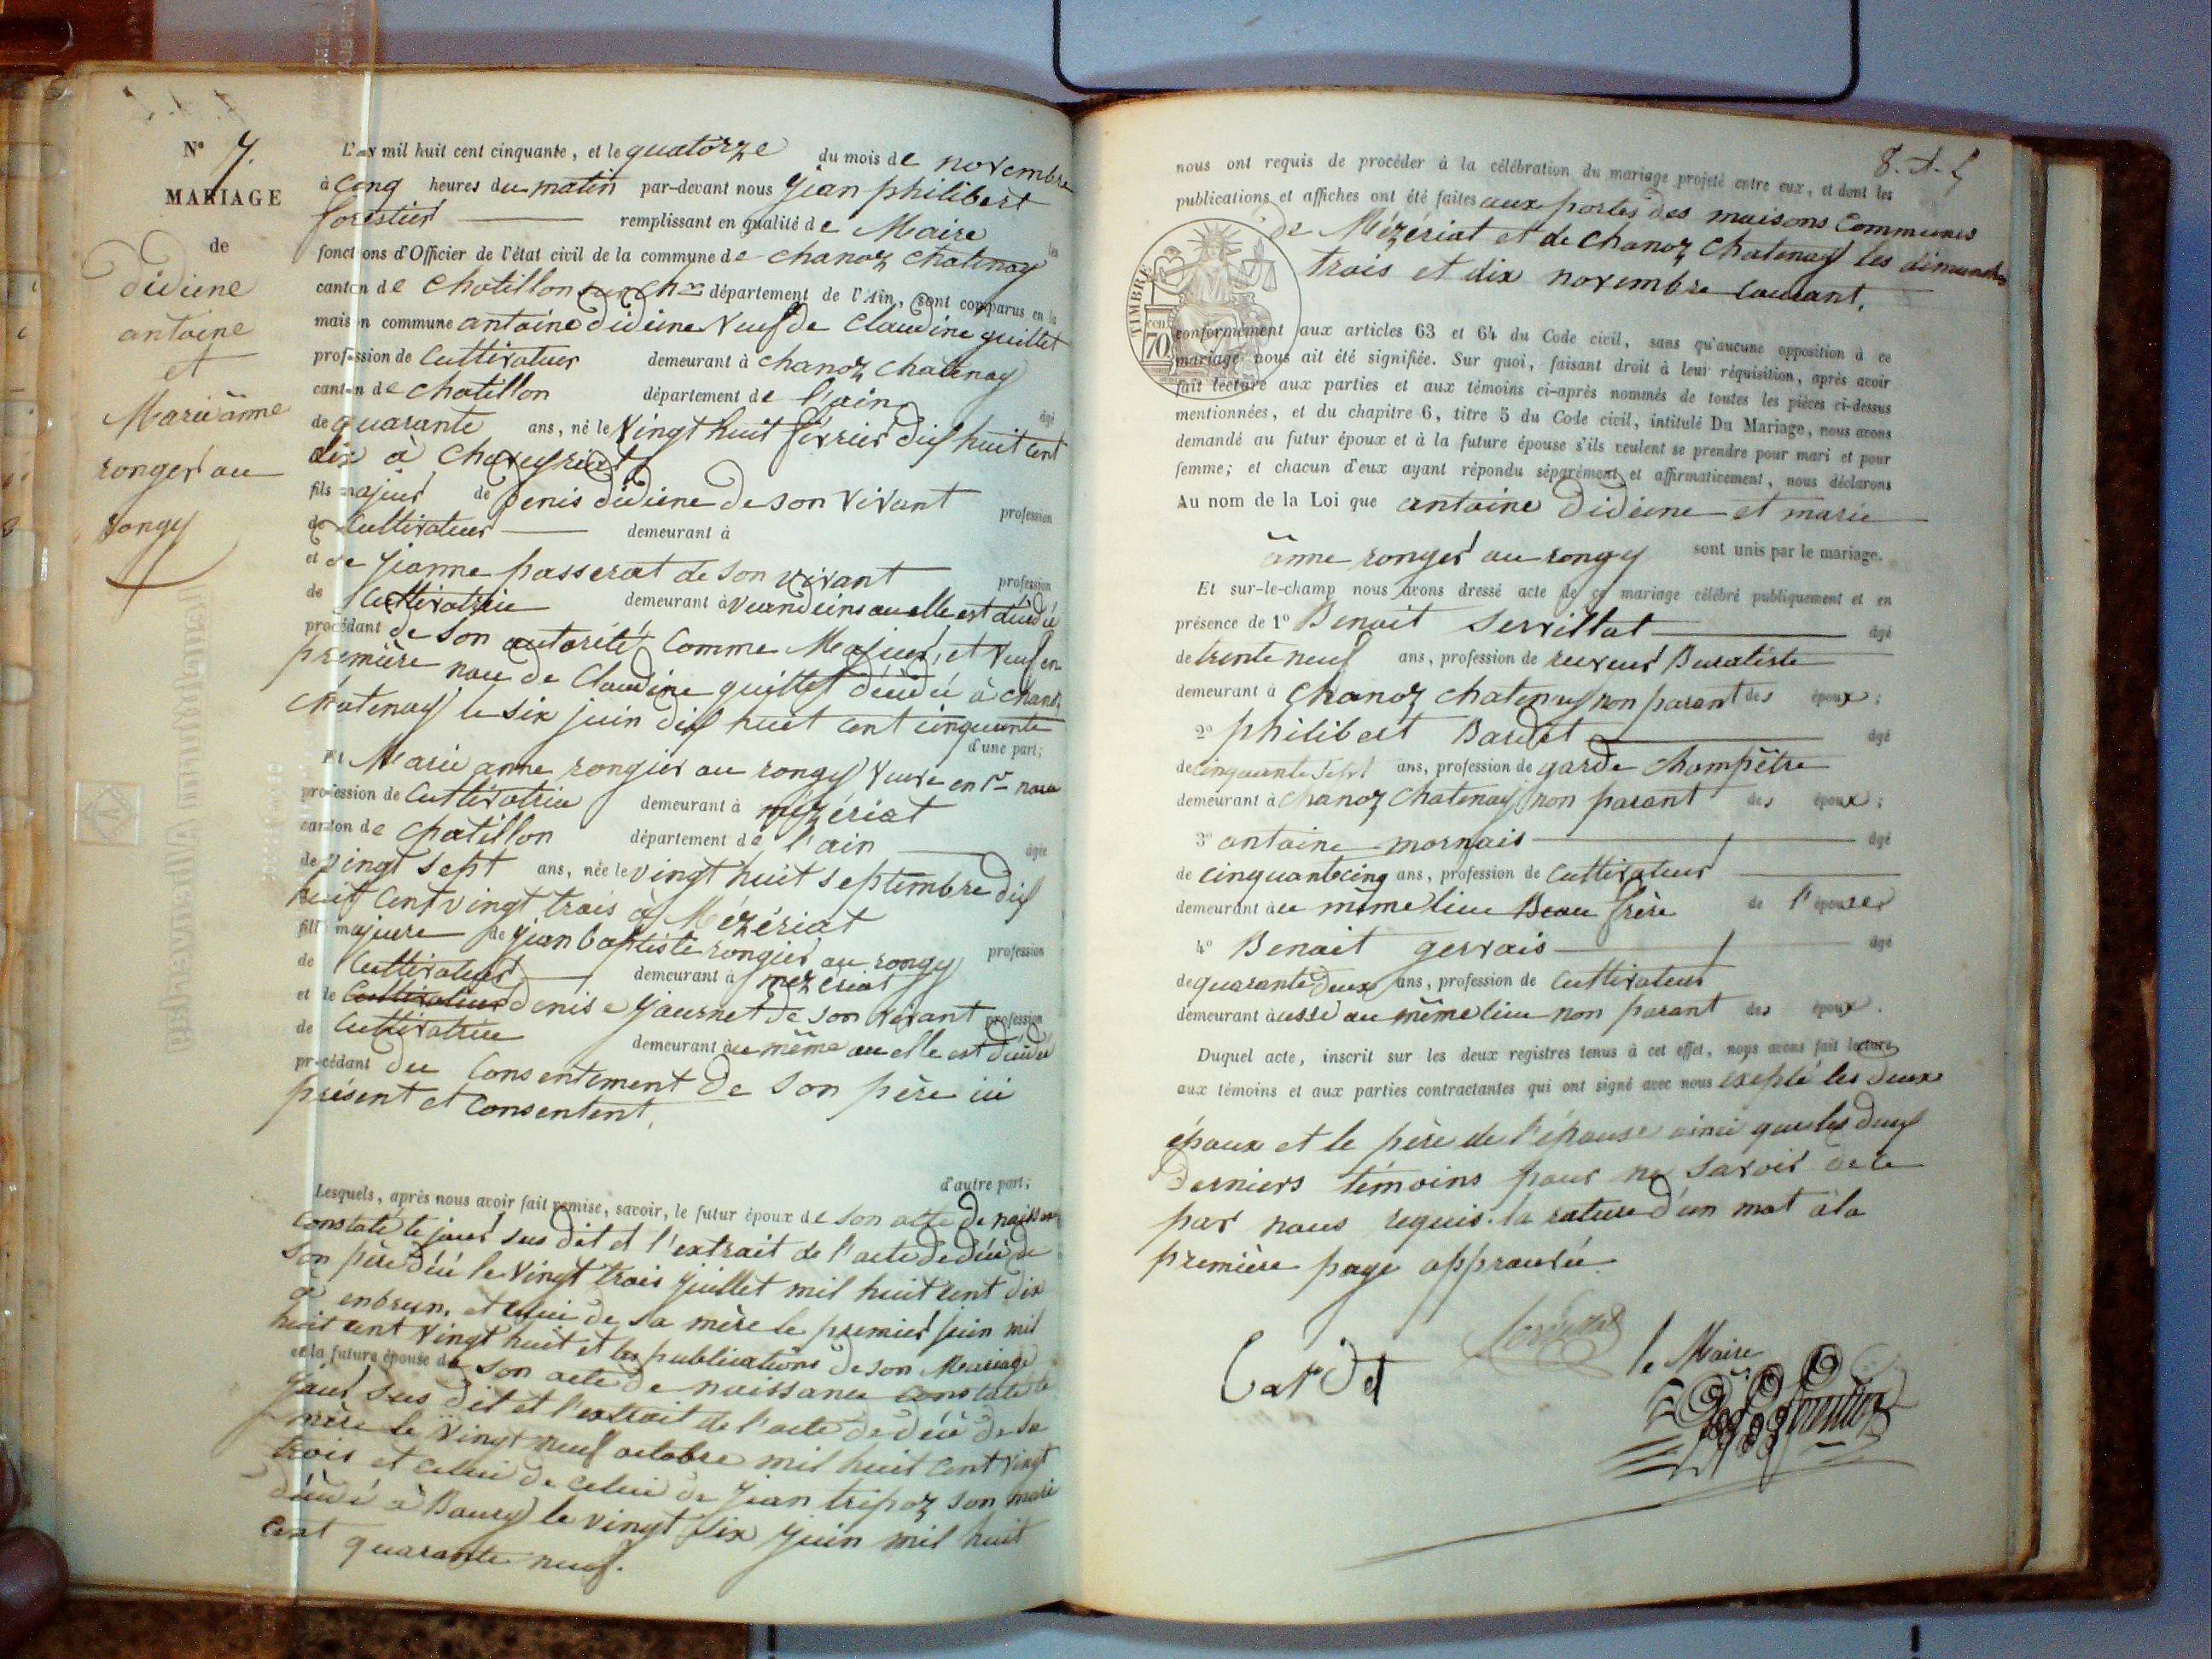 N° 7.
MARIAGE
de
didiene
antoine
et
Marie änne
ronger au
rongy
L'an mil huit cent cinquante, et le quatorze du mois de novembre
à cenq heures du matin par-devant nous jean philibert
forestier remplissant en qualité de Maire les
fonctions d'Officier de l'état civil de la commune de chanoz chatenay
canton de chatillon sur ch.ne département de l'Ain, sont comparus en la
maison commune antoine didiene veuf de Claudine guillet
profession de Cultivateur demeurant à chanoz chatenay
canton de chatillon département de l'ain âgé
de quarante ans, né le vingt huit février dix huit cent
dix à Chaveyriat
fils majeur de denis didiene de son vivant profession
de Cultivateur demeurant à
et de jeanne passerat de son vivant profession
de Cultivatrice demeurant à veandeins au elle est décédé
procédant de son autorité comme Majeur, et veuf en
première noce de Claudine guillet décédé à chanoz
chatenay le six juin dix huit cent cinquante
d'une part;
Et Marie anne rongier au rongy veuve en 1re noce
profession de Cultivatrice demeurant à mézériat
canton de chatillon département de l'ain âgée
de vingt sept ans, née le vingt huit septembre dix
huit cent vingt trois à Mézériat
fille majeure de jean baptiste rongier au rongy profession
de Cultivateur demeurant à mézériat
et de Cultivateur denise journet de son vivant profession
de Cultivatrice demeurant au même au elle est décédé
procédant du consentement de son père ici
présent et consentent.
d'autre part;
Lesquels, après nous avoir fait remise, savoir, le futur époux de son acte de naissance
constaté le jour sus dit et l'extrait de l'acte de décè de
son père décé le vingt trois juillet mil huit cent dix
à enbrun, et celui de sa mère le premier juin mil
huit cent vingt huit et les publications de son Mariage
et la future épouse de son acte de naissance constaté le
jour sus dit et l'extrait de l'acte de décè de sa
mère le vingt neuf octobre mil huit cent vingt
trois et celui de celui de jean tripoz son mari
décédé à Bourg le vingt six juin mil huit
cent quarante neuf.
nous ont requis de procéder à la célébration du mariage projeté entre eux, et dont les
publications et affiches ont été faites aux portes des maisons communes
de Mézériat et de chanoz chatenay les dimanches
trois et dix novembre courant,
TIMBRE
70 cen
conformément aux articles 63 et 64 du Code civil, sans qu'aucune opposition à ce
mariage nous ait été signifiée. Sur quoi, faisant droit à leur réquisition, après avoir
fait lecture aux parties et aux témoins ci-après nommés de toutes les pièces ci-dessus
mentionnées, et du chapitre 6, titre 5 du Code civil, intitulé Du Mariage, nous avons
demandé au futur époux et à la future épouse s'ils veulent se prendre pour mari et pour
femme; et chacun d'eux ayant répondu séparément et affirmativement, nous déclarons
Au nom de la Loi que antoine didiene et marie
änne ronger au rongy sont unis par le mariage.
Et sur-le-champ nous avons dressé acte de ce mariage célébré publiquement et en
présence de 1° Benoit Servillat âgé
de trente neuf ans, profession de receveur Buraliste
demeurant à chanoz chatenay non parant des époux;
2° philibert Bardet âgé
de cinquante sept ans, profession de garde champètre
demeurant à chanoz chatenay non parant des époux;
3° antoine mornais âgé
de cinquante cinq ans, profession de Cultivateur
demeurant au même lieu Beau frère de l'épouse
4° Benait gervais âgé
de quarante deux ans, profession de Cultivateur
demeurant aussi au même lieu non parant des époux.
Duquel acte, inscrit sur les deux registres tenus à cet effet, nous avons fait lecture
aux témoins et aux parties contractantes qui ont signé avec nous excepté les deux
époux et le père de l'épouse ainsi que les deux
derniers témoins pour ne savoir de ce
par nous requis. la rature d'un mot à la
première page approuvée.
le Maire
Bardet